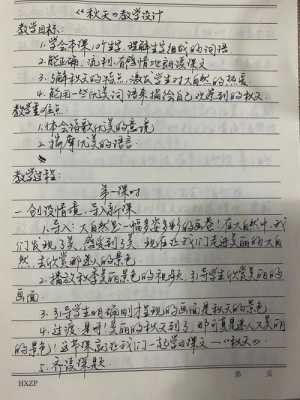 《秋天》教学设计
教学目标:
1.学会本课10个生字,理解生字组成的词语
2.能正确、流利、有感情地朗读课文
3.了解秋天的特点,激发学生对大自然的热爱
4.能用一些优美词语来描绘自己观察到的秋天.
教学重难点:
1.体会诗歌优美的意境
2.揣摩优美的语言.
教学过程:
第一课时
一、创设情境,导入新课
1.导入:大自然是一幅多姿多彩的画卷!在大自然中,我
们发现了美,感受到了美,现在让我们走进美丽的大自
然,去欣赏那迷人的景色
2.播放秋季美丽景色的视频,引导学生欣赏美丽的
画面.
3.引导学生明确刚才呈现的画面是秋天的景色
4.过渡:是啊!美丽的秋天到了,那可真是迷人又美丽
的景色!这节课就让我们一起学习课文——《秋天》.
5.齐读课题
HXZP
第 页